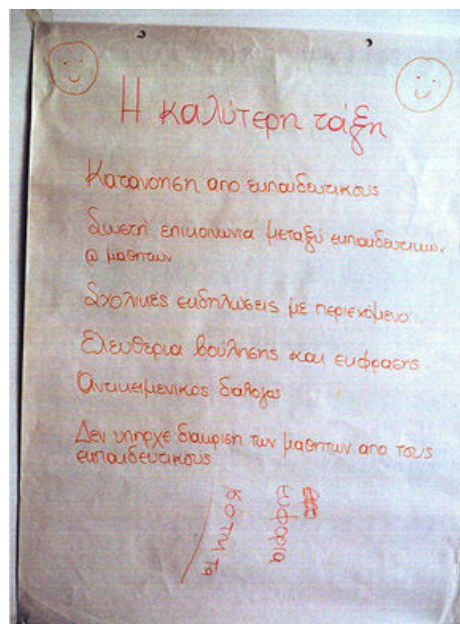 Η καλύτερη τάξη
Κατανοηση απο εκπαιδευτικους
επικοινωνια μεταξύ εκπαιδευτικων
@ μαθητων
Σχολικές εκδηλώσεις με περιεχόμενο
Ελευθερια βούλησης και εκφρασης
Αντικειμενικος
Δεν υπηρχε διακριση των μαθητων απο τους
εκπαιδευτικους